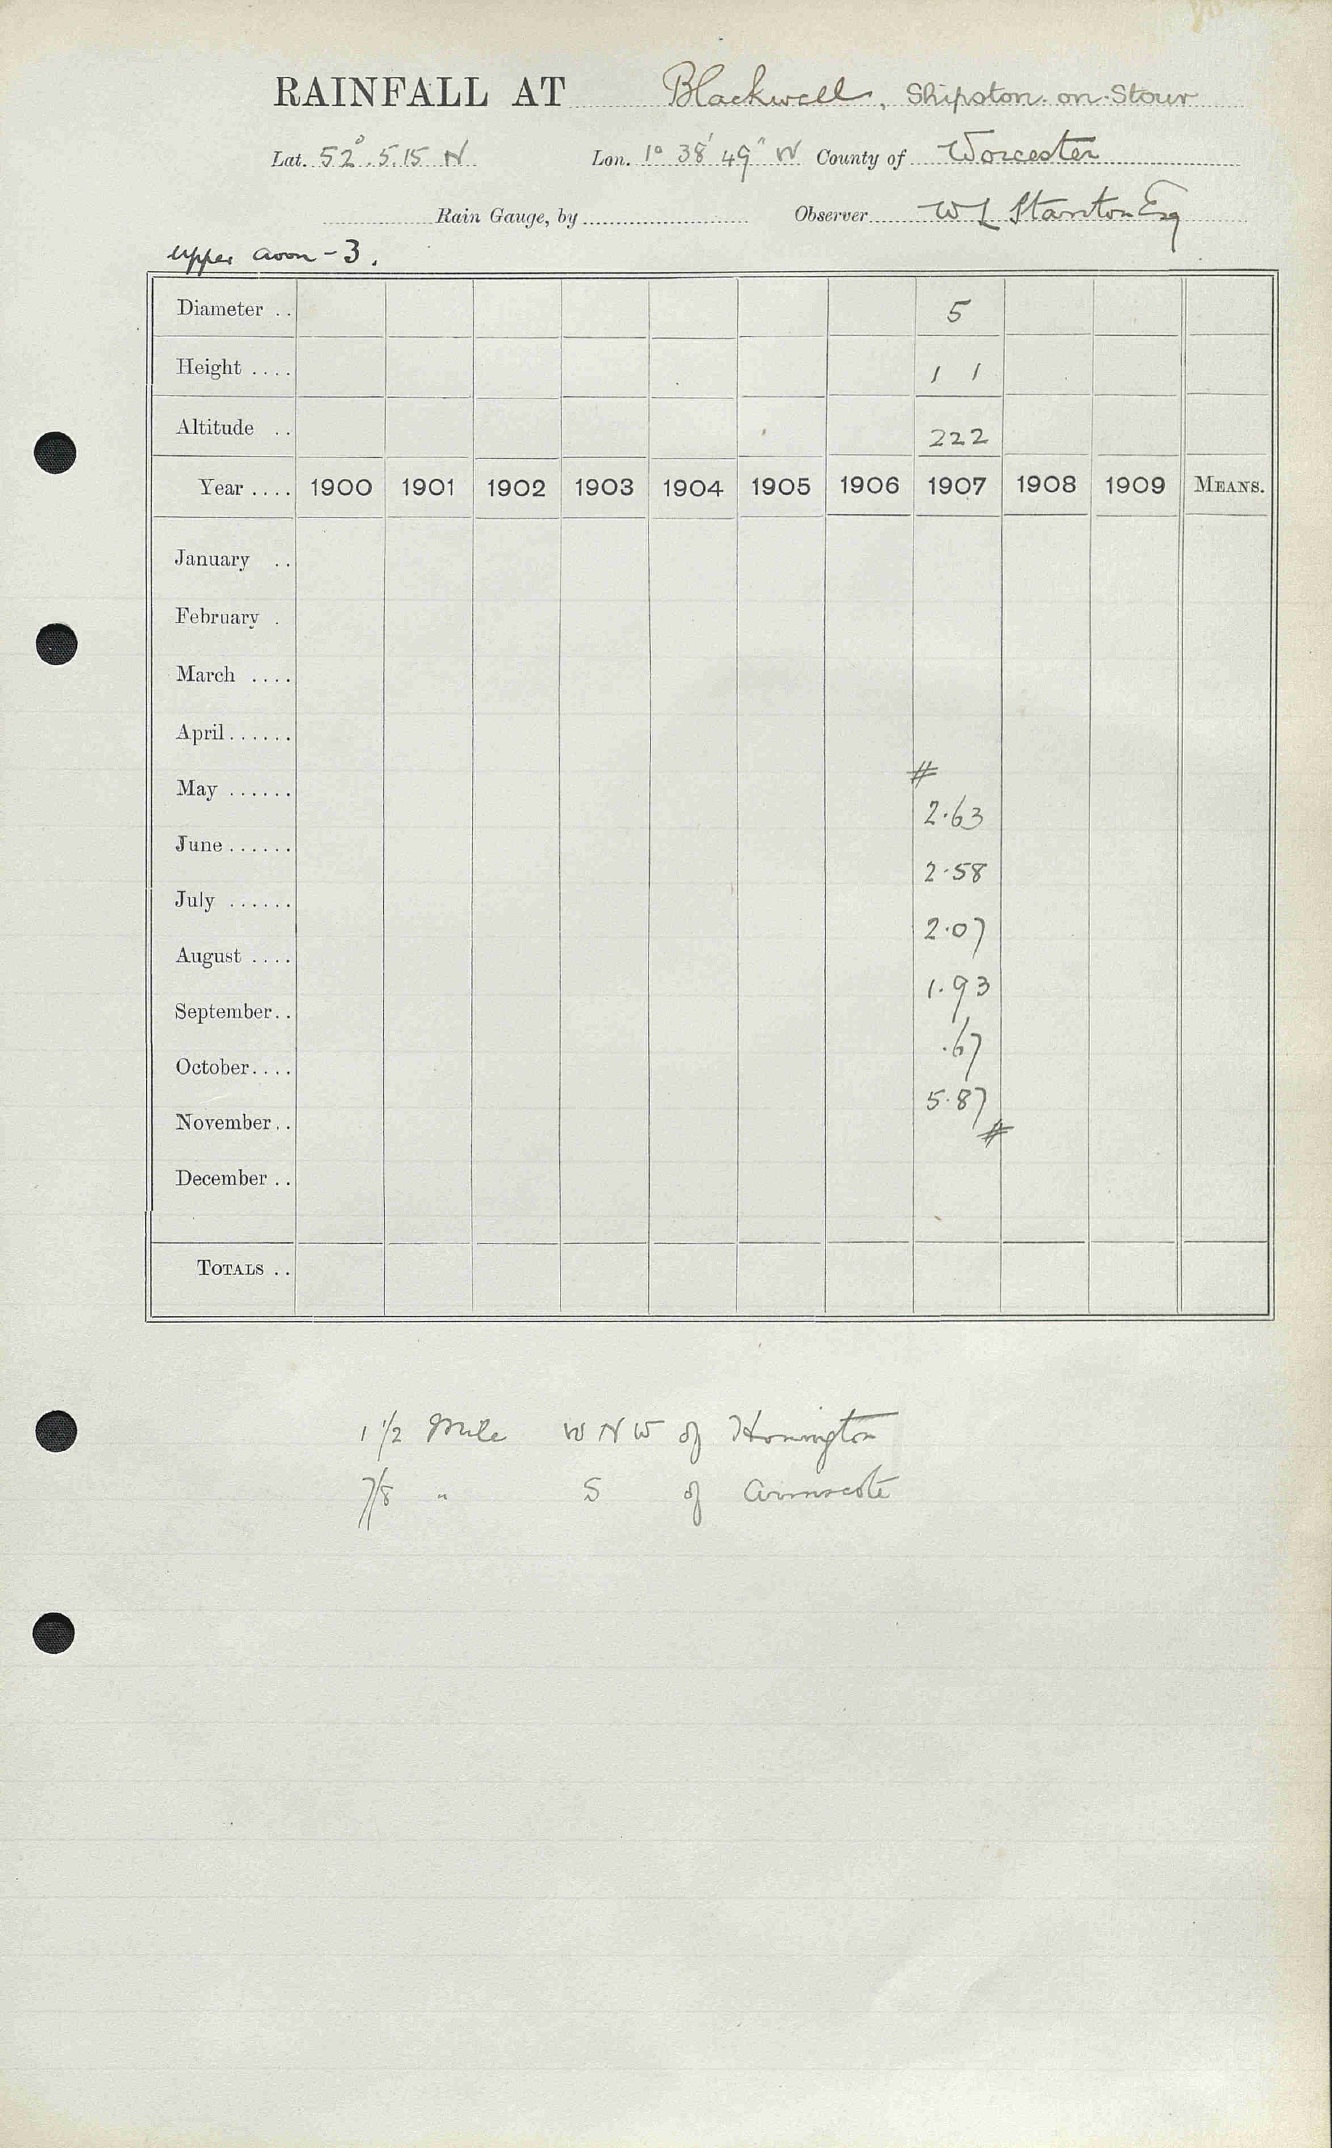 RAINFALL AT Blackwell, Shipston-on-Stour
Lat. 52°.5.15 N Lon. 1° 38' 49" W County of Worcester
Rain Gauge, by Observer W L Stanton Esq
Upper Avon - 3.
Diameter .. 5
Height .... 1 1
Altitude .. 222
Year .... 1900 1901 1902 1903 1904 1905 1906 1907 1908 1909 MEANS.
January ..
February .
March ....
April ......
#
May ......
2.63
June ......
2.58
July ......
2.07
August ....
1.93
September..
.67
October....
5.87
November..
#
December ..
TOTALS ..
1 1/2 Mile WNW of Honington
7/8 " S of Armscote